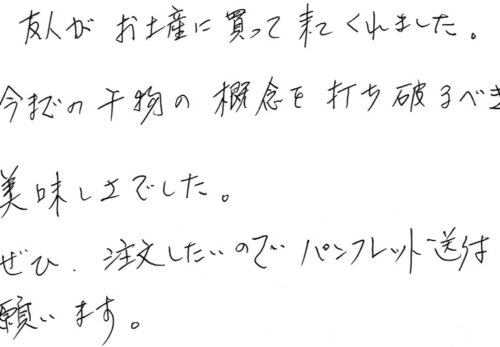 友人がお土産に買って来てくれました。
今までの干物の概念を打ち破るべき
美味しさでした。
ぜひ、注文したいのでパンフレット送付
願います。